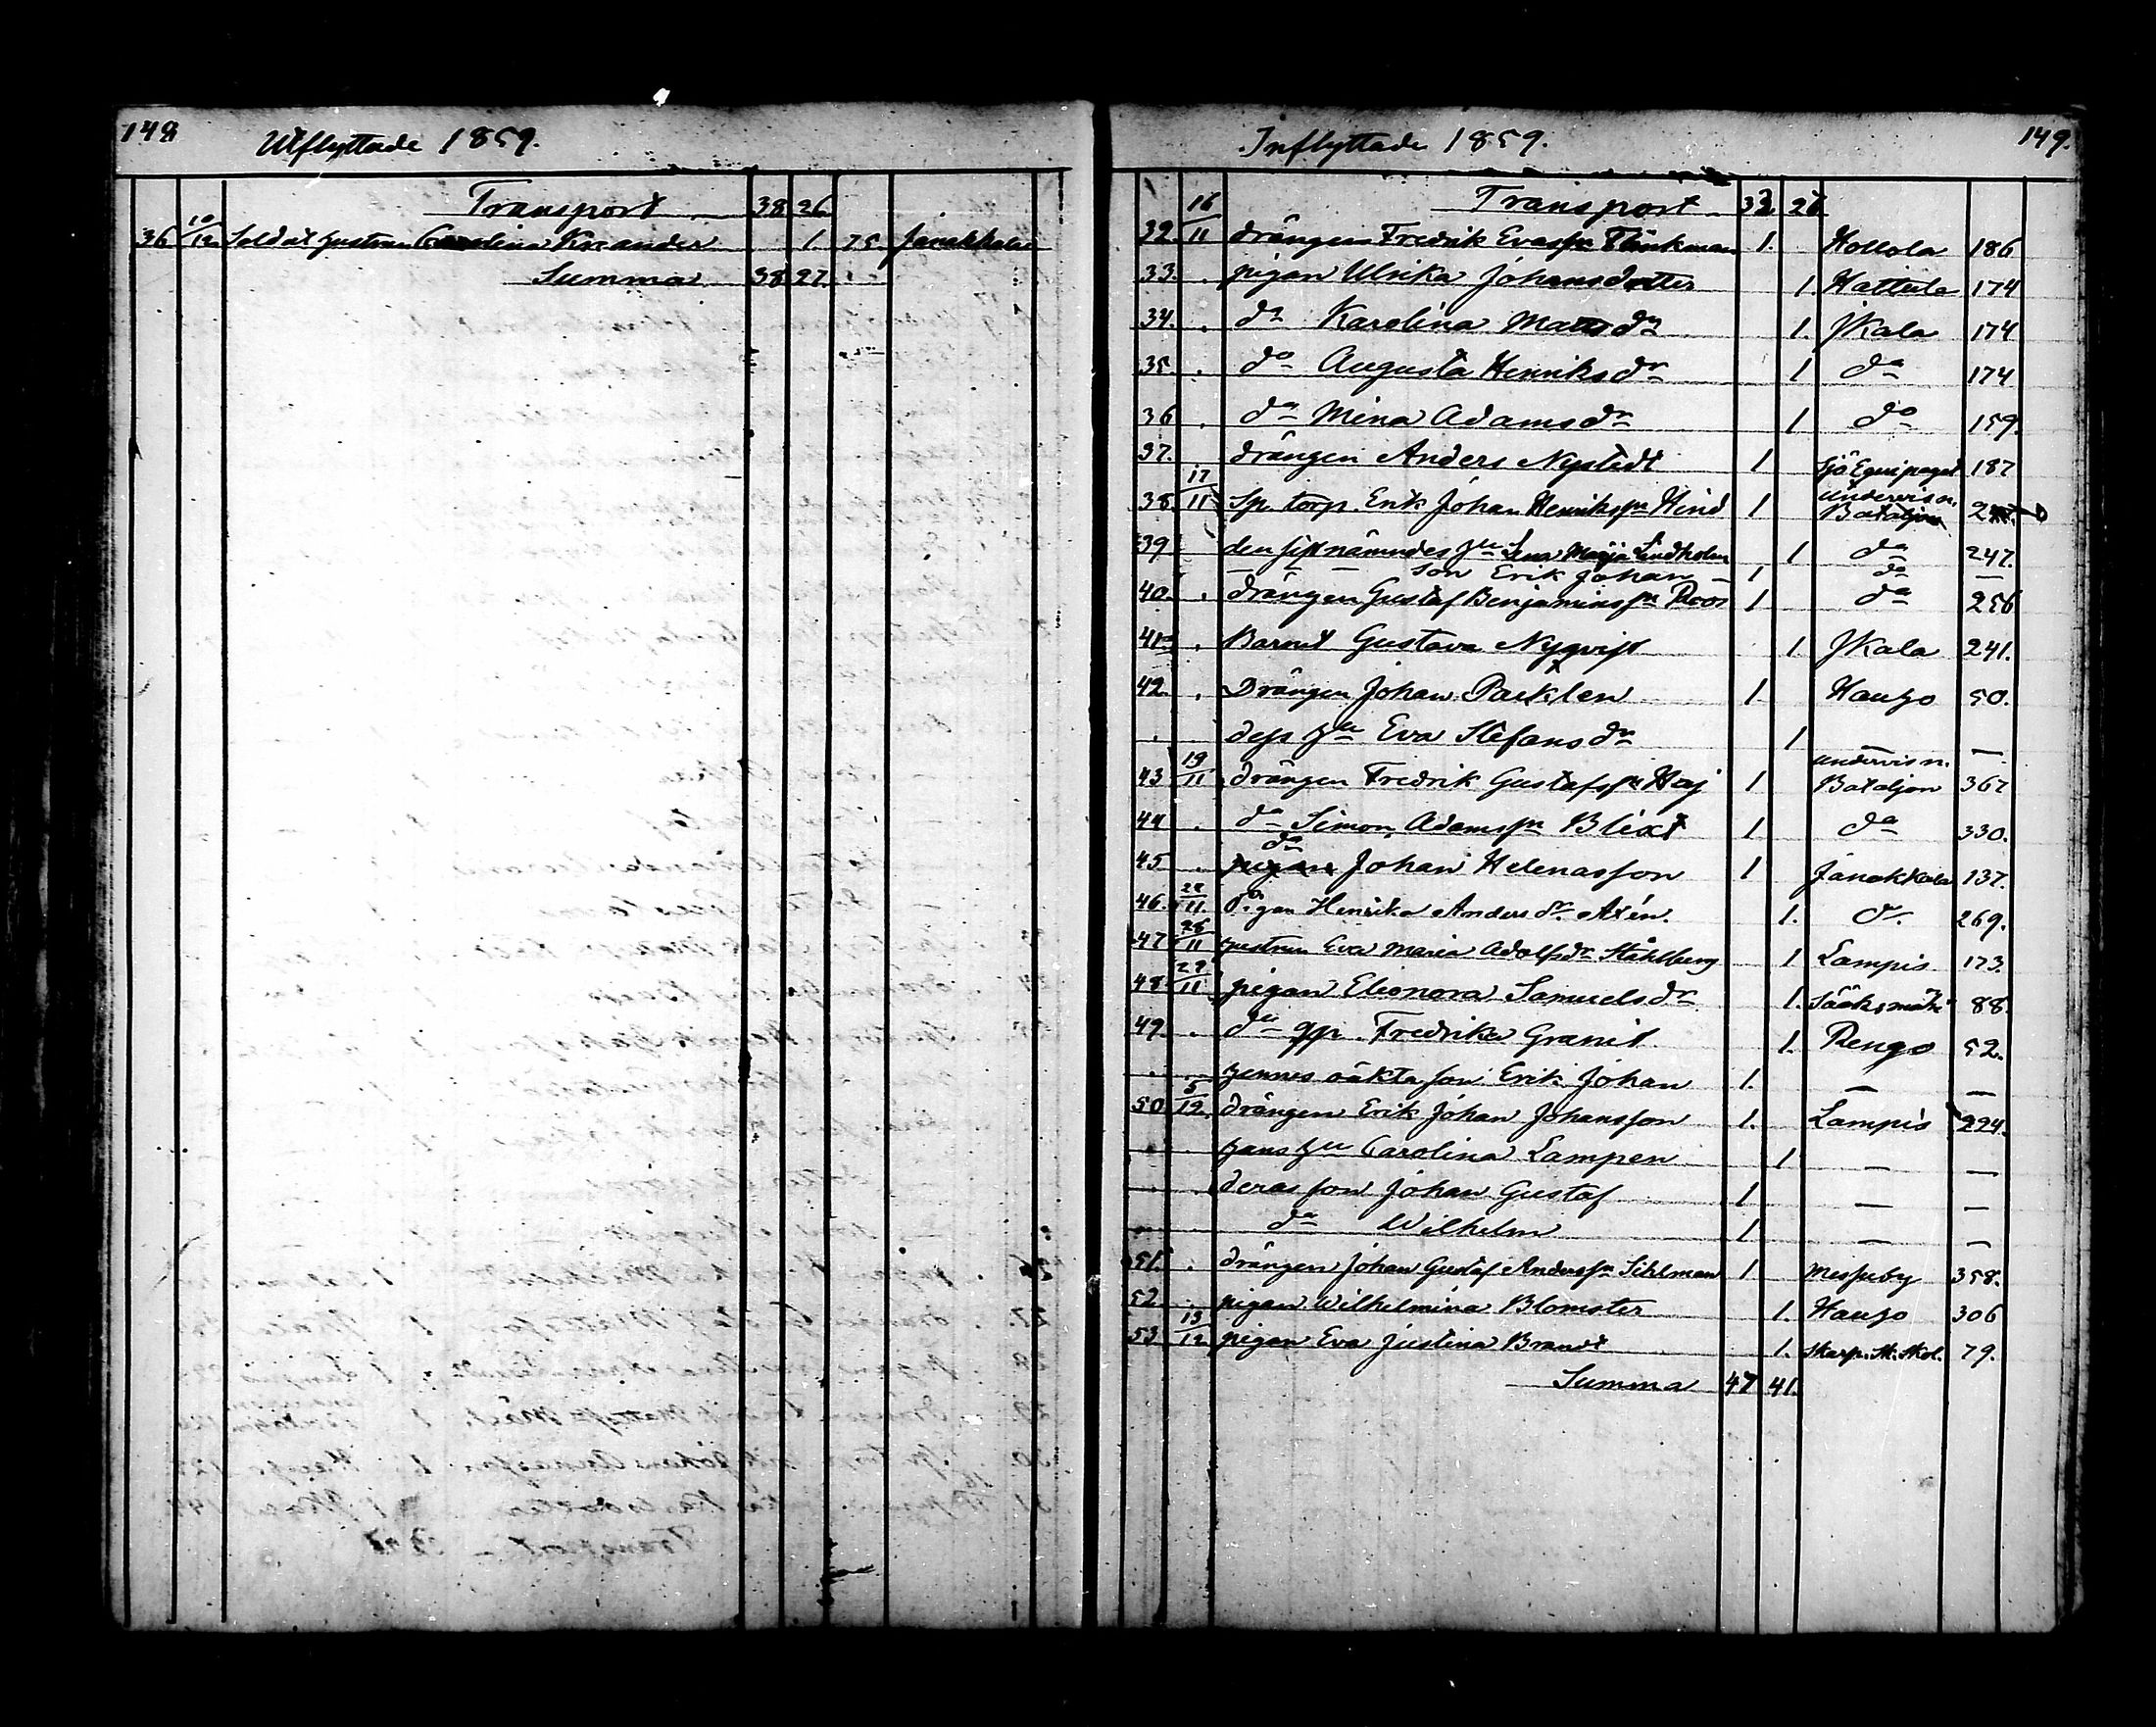 148
Utflyttade 1859.
Transport 38 26
36 10/12 Soldat hustrun Carolina 1. 75 Janakkala
Summa 38 27.
Inflyttade 1859. 149.
16 Transport 32. 26
32. 11 drängen Fredrik Evasson Flinkman 1. Hollola 186
33. . pigan Ulrika Johansdotter 1. Hattula 174
34. . do Karolina Matts dr 1. Kala 174
35. . do Augusta Henriks dr 1 do 174
36 . do Mina Adams dr 1 do 159.
37. drängen Anders Nystedt 1 Sjö Equipaget 187
17 undervisn.
38. 11 Sp. torp. Erik Johan Henrikssn Hind 1 Bataljon
39 den sistnämndes hu Lena Maija Lindholm 1 do 247.
son Erik Johan 1 do —
40. . drängen Gustaf Benjaminssn Roos 1 do 256
41. . Barnet Gustava Nyqvist 1 Kala 241.
42. . Drängen Johan Packlen 1. Hauho 50.
. . dess hu Eva Stefans dr 1 — —
19 undervisn.
43 11 drängen Fredrik Gustafssn Haj 1 Bataljon 367
44 . do Simon Adamssn Blixt 1 do 330.
do
45 . pigan Johan Helenasson 1 Janakkala 137.
46. 11. Pigan Henrika Anders dr Axén. 1. do. 269.
47 28/11 hustrun Eva Maria Adolfs dr Ståhlberg 1 Lampis 173.
48. 29/11 pigan Eleonora Samuels dr 1. Sääksmäki 88.
49. . do qp. Fredrika Granit 1. Rengo 52.
. . hennes oäkta son Erik Johan 1. — —
50 5/12. drängen Erik Johan Johansson 1. Lampis 224.
. . hans hu Carolina Lampen 1 — —
. . deras son Johan Gustaf 1 — —
do Wilhelm 1 — —
51. . drängen Johan Gustaf Anderssn Sihlman 1 Messuby 358.
52 . pigan Wilhelmina Blomster 1. Hauho 306
53 13/12 pigan Eva Justina Brandt 1. Skarp. Sk. Skol. 79.
Summa 47 41.